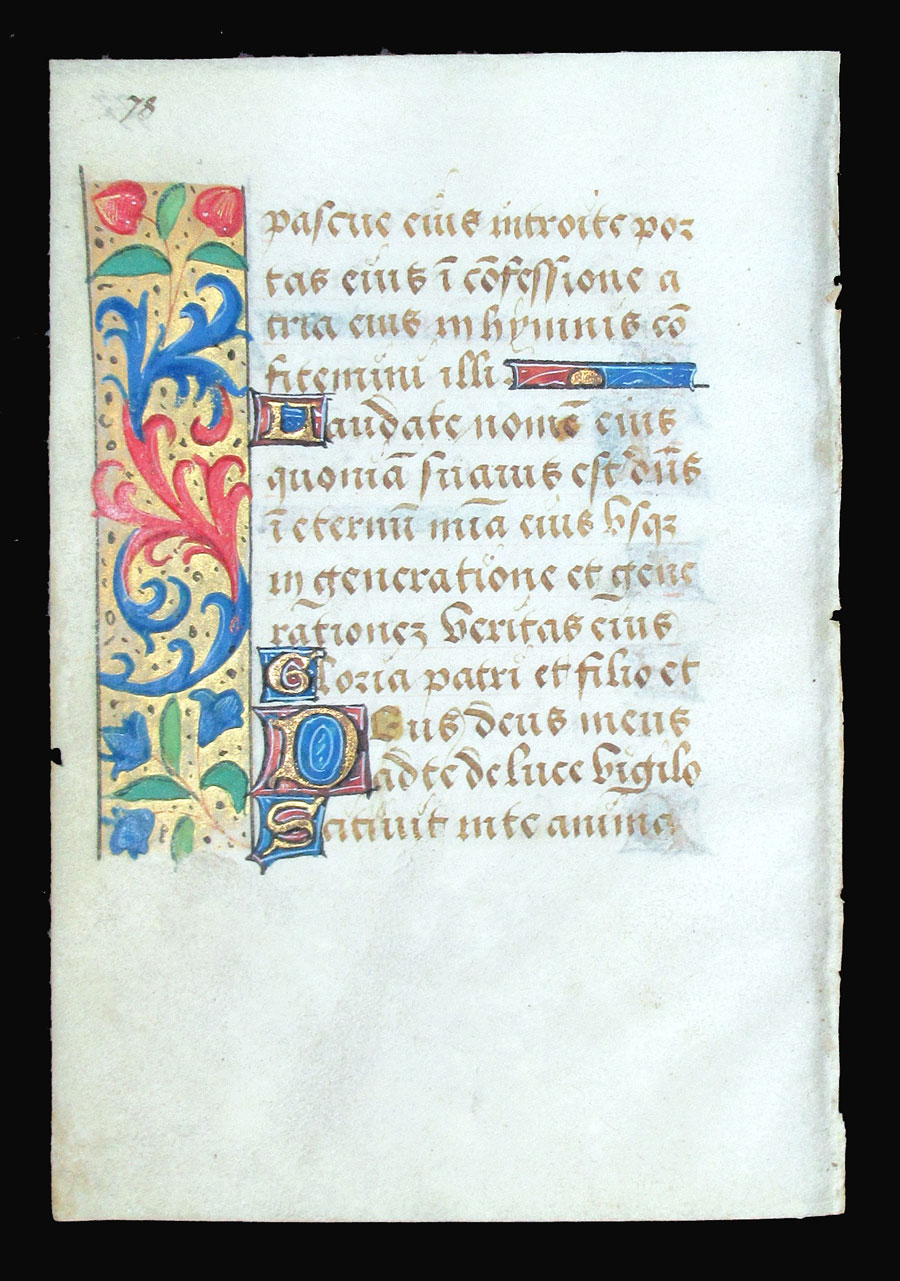 78
pascue eius introite por
tas eius ī cōfessione a
tria eius in hymnis cō
fitemini illi
Laudate nomē eius
quoniā suauis est dn̄s
ī eternū mīa eius vsqꝫ
in generatione et gene
rationez veritas eius
Gloria patri et filio et
Deus deus meus
ad te de luce vigilo
Scitiuit in te anima